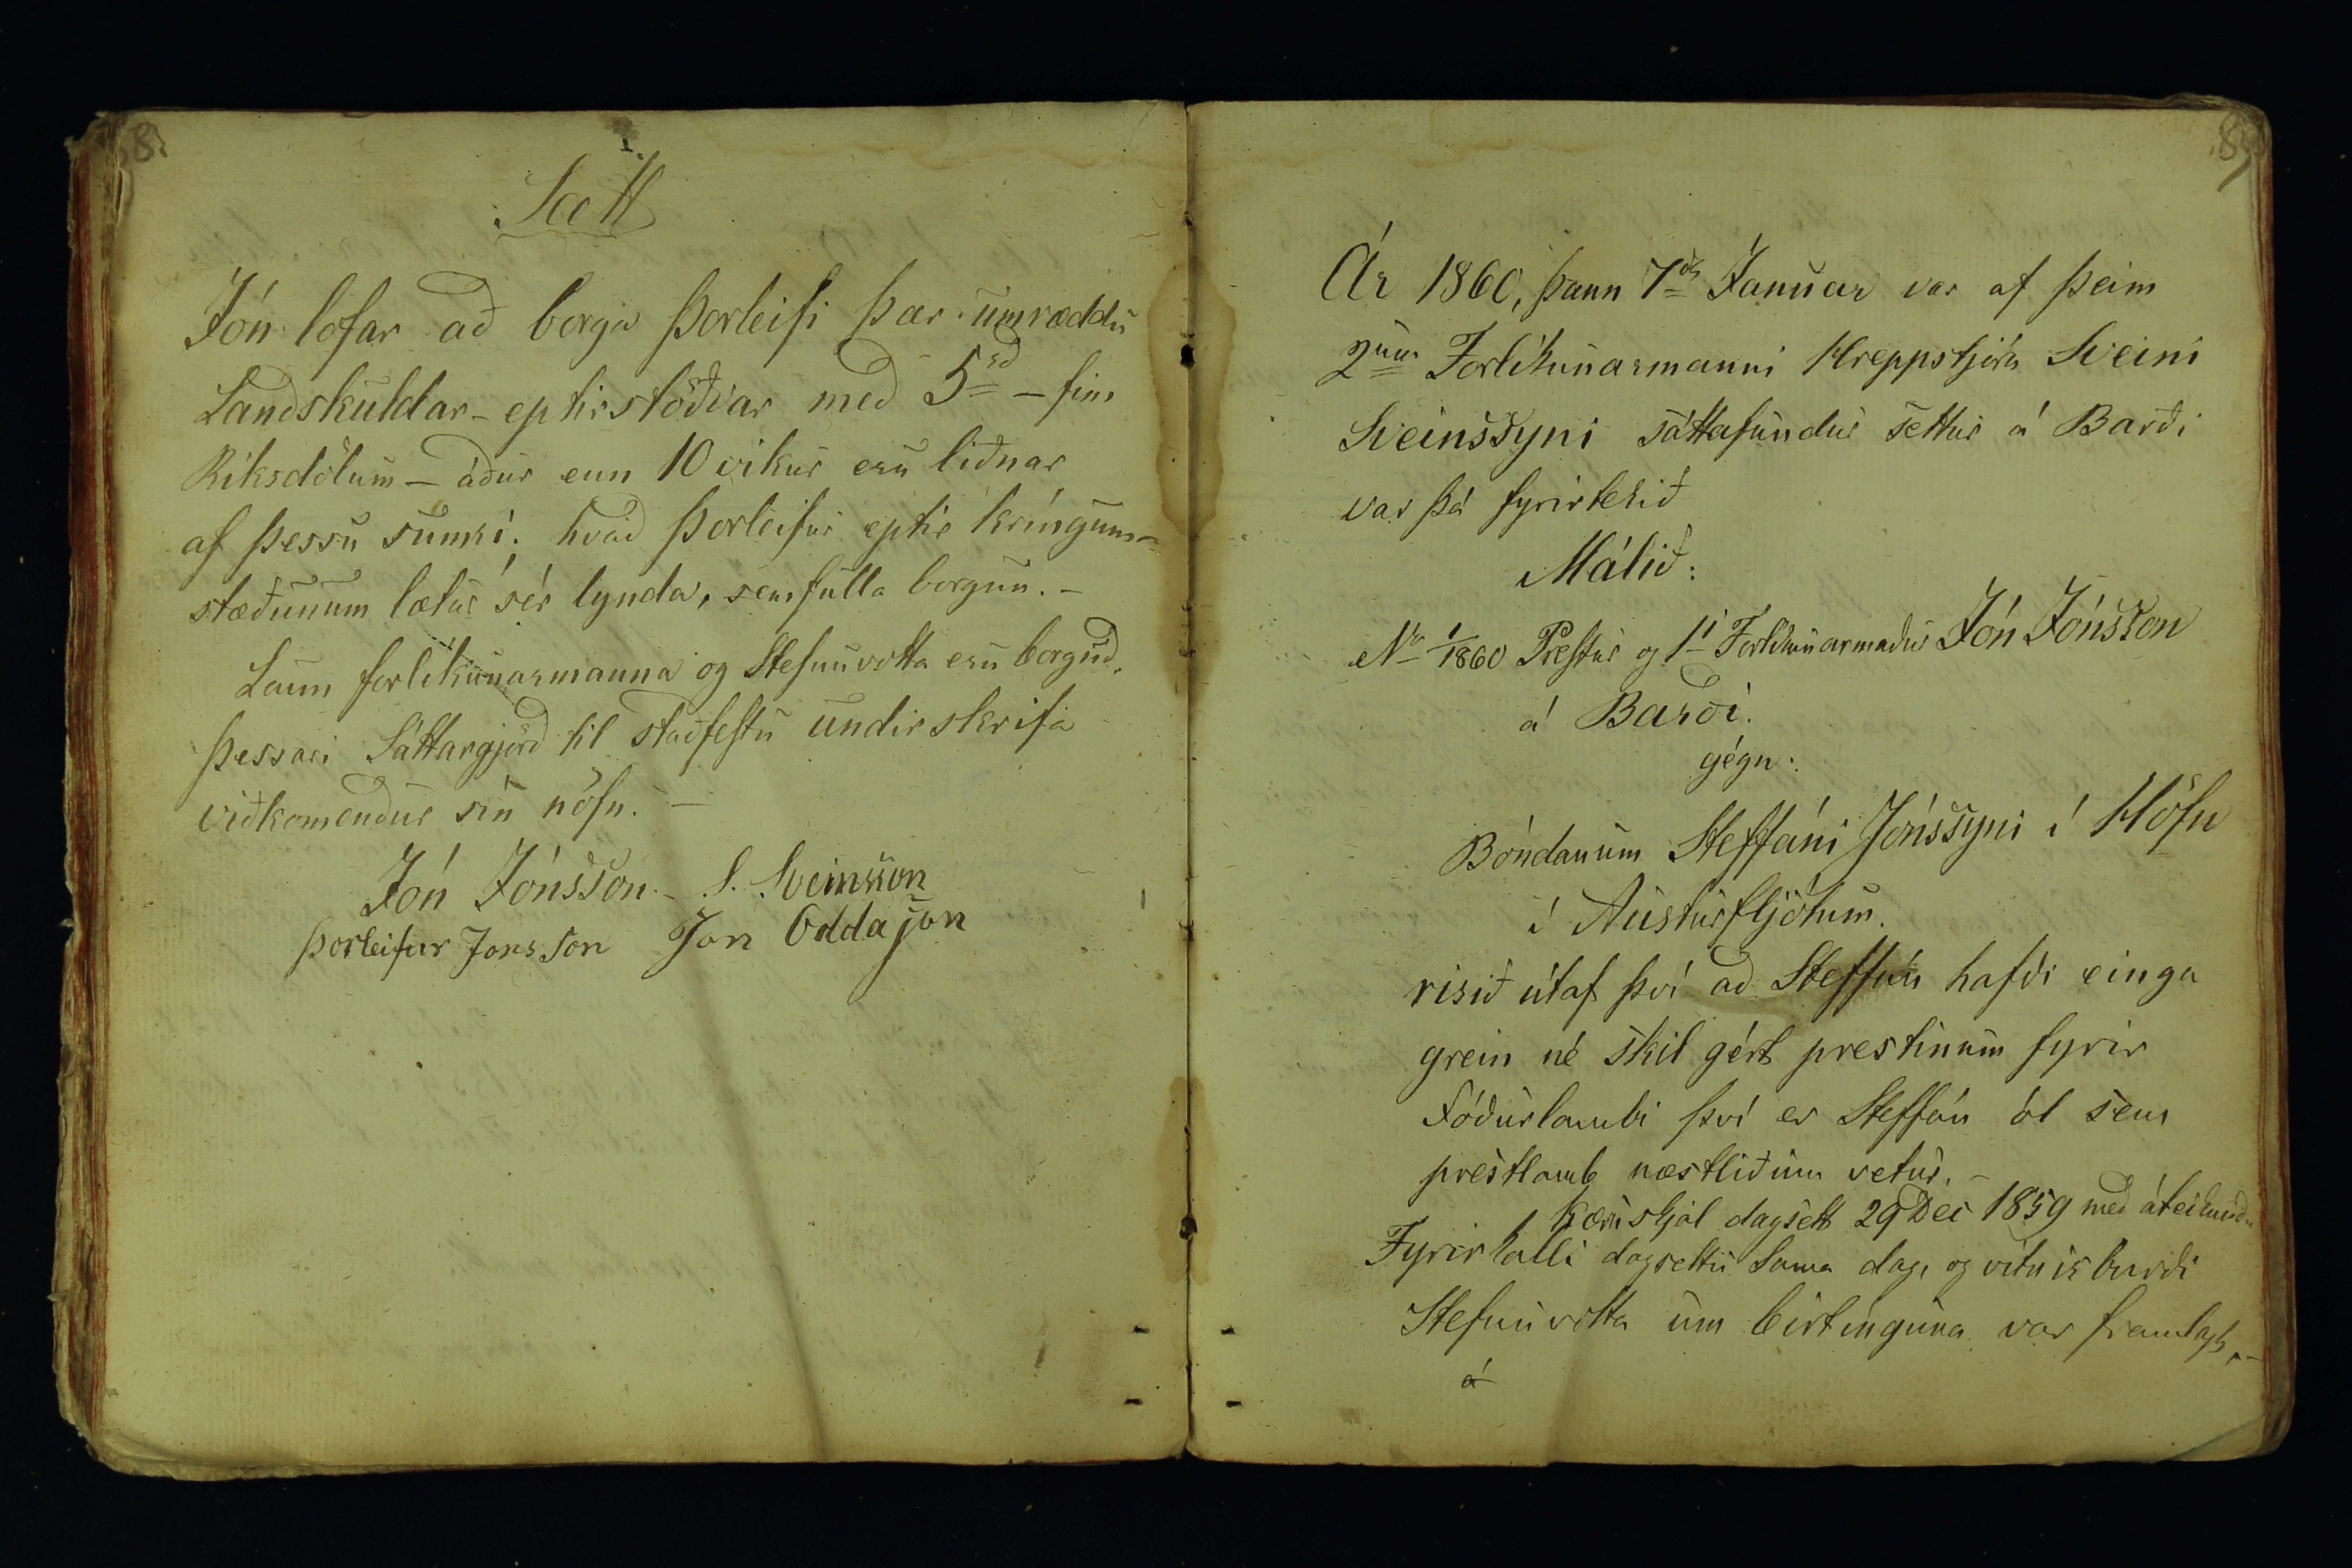 8
Sætt
Jón lofar að borga Þorleifi þær umræddu
Landskuldar-eptirstöðvar með 5rd – fim
Ríksdölum – áður enn 10 vikur eru liðnar
af þessu sumri; hvað Þorleifur eptir kríngum-
stæðunum lætur sér lynda, sem fulla borgun. –
Laun forlíkunarmanna og Stefnuvotta eru borguð.
Þessari Sáttargjörð til staðfestu undirskrifa
viðkomendur sín nöfn. –
Jón Jónsson. – S. Sveinsson
Þorleifur Jonsson Jon Oddason
89
Ár 1860, þann 7da Januar var af þeim
2num Forlíkunarmanni Hreppstjóra Sveini
Sveinssyni sáttafundur settur á Barði
var þá fyrirtekið
Málið:
No 1/1860 Prestur og 1i Forlíkunarmaður Jón Jónsson
á Barði.
gégn:
Bóndanum Steffáni Jónssyni í Höfn
í Austurfljótum.
risið útaf því að Steffán hafði einga
grein né skil gért prestinum fyrir
Fóðurlambi því er Steffán ól sem
prestlamb næstliðinn vetur. –
Kæruskjal dagsett 29 Dec 1859 með áteiknuðu
Fyrirkalli dagsettu sama dag, og vitnisburði
Stefnuvotta um birtínguna var framlagt, –
á